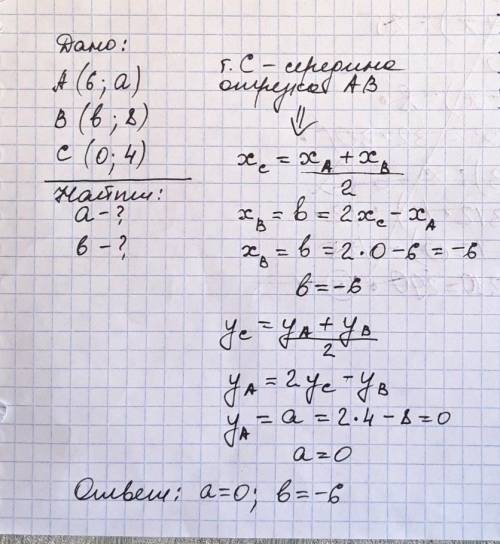 Дано:
A (6; a)
B (в; 8)
C (0; 4)
Найти:
a - ?
в - ?
т. C - середина
отрезка AB
⇓
x_C = (x_A + x_B)/2
x_B = в = 2x_C - x_A
x_B = в = 2·0 - 6 = -6
в = -6
y_C = (y_A + y_B)/2
y_A = 2y_C - y_B
y_A = a = 2·4 - 8 = 0
a = 0
Ответ: a = 0; в = -6